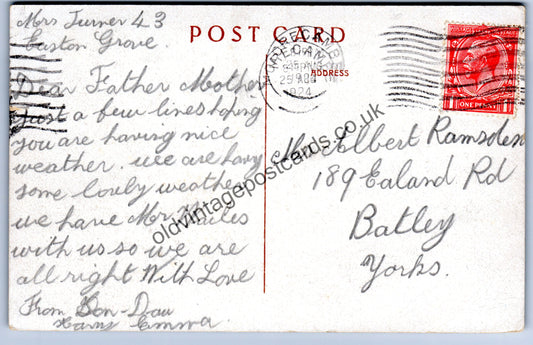 Mrs Turner 43
Easton Grove.
POST CARD
ADDRESS
1924
ONE PENNY
Dear Father Mother
Just a few lines hoping
you are having nice
weather. we are having
some lovly weather
we have Mr
with us so we are
all right With Love
From Son-Dau
Harry Emma.
Mr Albert Ramsden
189 Ealand Rd
Batley
Yorks.
oldvintagepostcards.co.uk